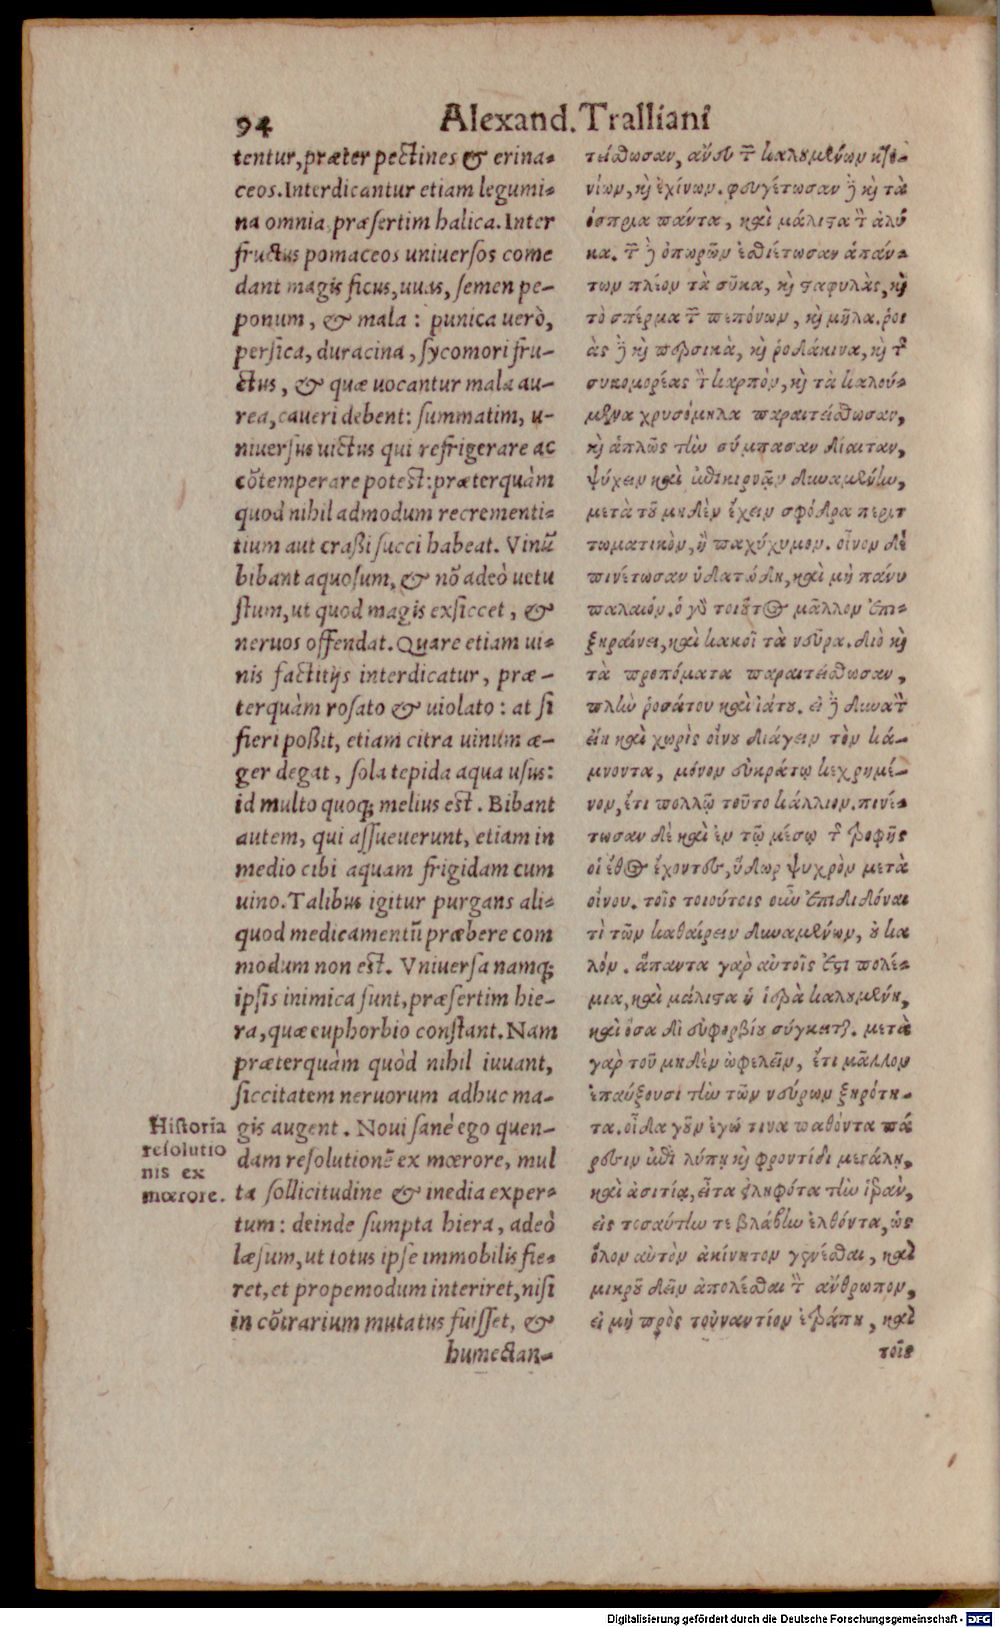 94 Alexand. Tralliani
tentur, præter pectines & erina-
ceos. Interdicantur etiam legumi-
na omnia, præsertim halica. Inter
fructus pomaceos uniuersos come
dant magis ficus, uuas, semen pe-
ponum, & mala: punica uerò,
persica, duracina, sycomori fru-
ctus, & quæ uocantur mala au-
rea, caueri debent: summatim, u-
niuersus uictus qui refrigerare ac
cõtemperare potest: præterquàm
quod nihil admodum recrementi-
tium aut crassi succi habeat. Vinũ
bibant aquosum, & nõ adeò uetu
stum, ut quod magis exsiccet, &
neruos offendat. Quare etiam ui-
nis factitijs interdicatur, præ-
terquàm rosato & uiolato: at si
fieri possit, etiam citra uinum æ-
ger degat, sola tepida aqua usus:
id multo quoq; melius est. Bibant
autem, qui assueuerunt, etiam in
medio cibi aquam frigidam cum
uino. Talibus igitur purgans ali-
quod medicamentũ præbere com
modum non est. Vniuersa namq;
ipsis inimica sunt, præsertim hie-
ra, quæ euphorbio constant. Nam
præterquàm quòd nihil iuuant,
siccitatem neruorum adhuc ma-
gis augent. Noui sanè ego quen-
dam resolutionẽ ex mœrore, mul
ta sollicitudine & inedia exper-
tum: deinde sumpta hiera, adeò
læsum, ut totus ipse immobilis fie-
ret, et propemodum interiret, nisi
in cõtrarium mutatus fuisset, &
humectan-
Historia
resolutio
nis ex
mœrore.
τείσθωσαν, ἄνευ τῶν καλουμένων κτε-
νίων, καὶ ἐχίνων. φευγέτωσαν δὲ καὶ τὰ
ὄσπρια πάντα, καὶ μάλιστα τὸ ἁλύ
κα. τῶν δὲ ὀπωρῶν ἐσθιέτωσαν ἁπάν-
των πλέον τὰ σῦκα, καὶ σταφυλὰς, καὶ
τὸ σπέρμα τῶν πεπόνων, καὶ μῆλα. ῥοι
ὰς δὲ καὶ περσικὰ, καὶ ῥοδάκινα, καὶ τῆς
συκομορέας τὸν καρπὸν, καὶ τὰ καλού-
μενα χρυσόμηλα παραιτείσθωσαν,
καὶ ἁπλῶς τὴν σύμπασαν δίαιταν,
ψύχειν καὶ ἐπικιρνᾷν δυναμένην,
μετὰ τοῦ μηδὲν ἔχειν σφόδρα περιτ
τωματικὸν, ἢ παχύχυμον. οἶνον δὲ
πινέτωσαν ὑδατώδη, καὶ μὴ πάνυ
παλαιόν. ὁ γὰρ τοιοῦτος μᾶλλον ἐπι-
ξηραίνει, καὶ κακοῖ τὰ νεῦρα. διὸ καὶ
τὰ προπόματα παραιτείσθωσαν,
πλὴν ῥοσάτου καὶ ἰάτου. εἰ δὲ δυνατὸν
εἴη καὶ χωρὶς οἴνου διάγειν τὸν κά-
μνοντα, μόνον εὐκράτῳ κεχρημέ-
νον, ἔτι πολλῷ τοῦτο κάλλιον. πινέ-
τωσαν δὲ καὶ ἐν τῷ μέσῳ τῆς τροφῆς
οἱ ἔθος ἔχοντες, ὕδωρ ψυχρὸν μετὰ
οἴνου. τοῖς τοιούτοις οὖν ἐπιδιδόναι
τὶ τῶν καθαίρειν δυναμένων, οὐ κα
λόν. ἅπαντα γὰρ αὐτοῖς ἐστι πολέ-
μια, καὶ μάλιστα ἡ ἱερὰ καλουμένη,
καὶ ὅσα δι' εὐφορβίου σύγκειται. μετὰ
γὰρ τοῦ μηδὲν ὠφελεῖν, ἔτι μᾶλλον
ἐπαύξουσι τὴν τῶν νεύρων ξηρότη-
τα. οἶδα γοῦν ἐγώ τινα παθόντα πά
ρεσιν ἐπὶ λύπῃ καὶ φροντίδι μεγάλῃ,
καὶ ἀσιτίᾳ, εἶτα εἰληφότα τὴν ἱερὰν,
εἰς τοσαύτην τε βλάβην ἐλθόντα, ὡς
ὅλον αὐτὸν ἀκίνητον γενέσθαι, καὶ
μικροῦ δεῖν ἀπολέσθαι τὸν ἄνθρωπον,
εἰ μὴ πρὸς τοὐναντίον ἐτράπη, καὶ
τοῖς
Digitalisierung gefördert durch die Deutsche Forschungsgemeinschaft - DFG